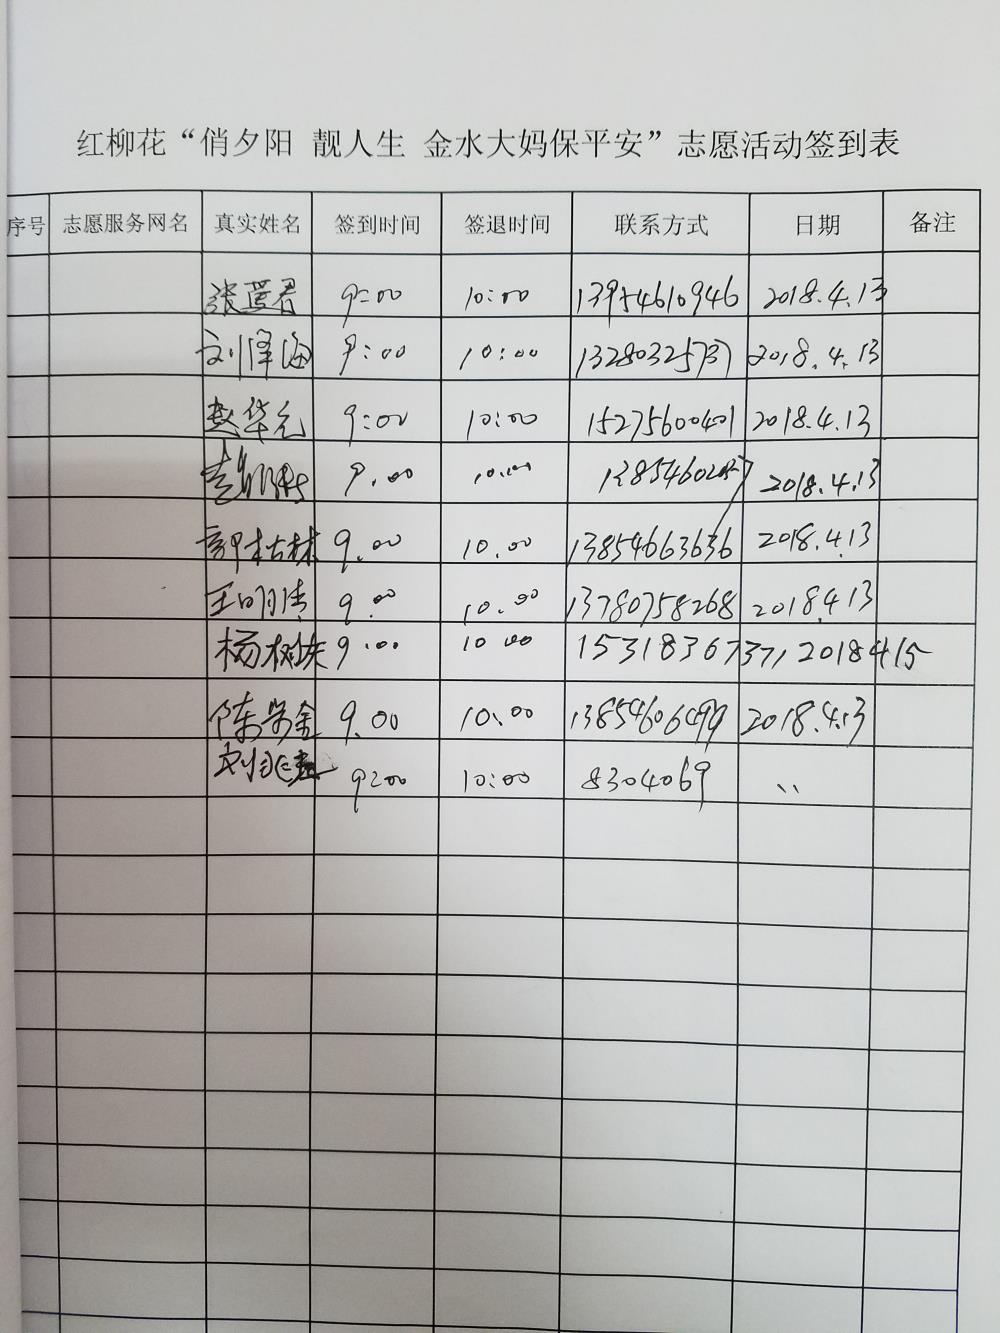 红柳花“俏夕阳 靓人生 金水大妈保平安”志愿活动签到表
序号 志愿服务网名 真实姓名 签到时间 签退时间 联系方式 日期 备注
9:00 10:00 13954610946 2018.4.13
刘泽海 9:00 10:00 13280325737 2018.4.13
赵华元 9:00 10:00 15275600401 2018.4.13
9.00 10.00 2018.4.13
9.00 10.00 13854663636 2018.4.13
王明 9.00 10.00 13780758268 2018.4.13
杨树 9.00 10 00 15318367371 2018 4 15
陈 金 9.00 10.00 2018.4.13
9:00 10:00 8304069 〃